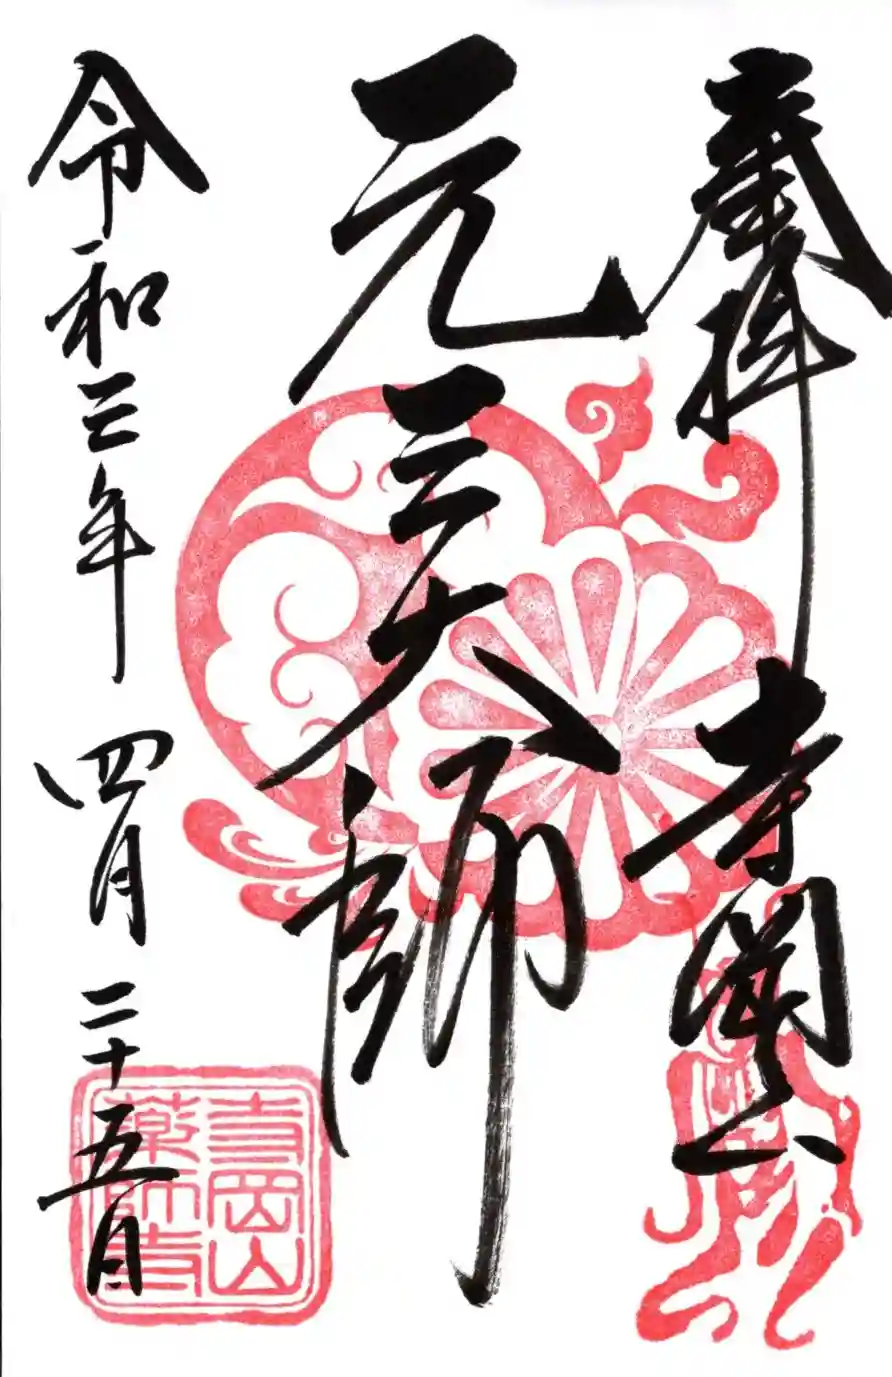 奉拝
寺岡山
元三大師
令和三年 四月 二十五日
寺岡山
薬師寺